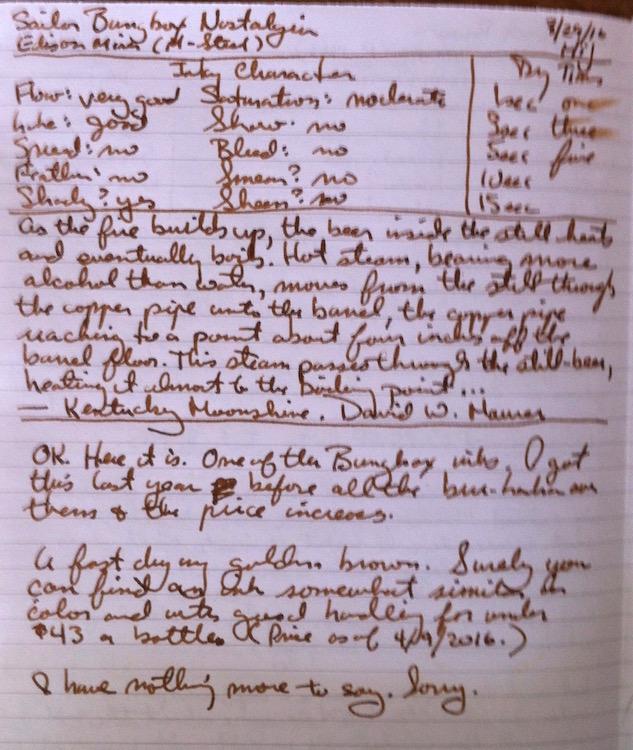 Sailor Bungbox Nostalgia 3/29/16
Edison Mina (M-Steel)
Inky Character Dry Times
Flow: very good Saturation: moderate 1sec one
Lube: good Show: no 3sec three
Spread: no Bleed: no 5sec five
Feather: no Smear? no 10sec
Shady? yes Sheen? no 15sec
As the fire builds up, the beer inside the still heats
and eventually boils. Hot steam, bearing more
alcohol than water, moves from the still through
the copper pipe into the barrel, the copper pipe
reaching to a point about four inches off the
barrel floor. This steam passes through the still-beer,
heating it almost to the boiling point...
— Kentucky Moonshine. David W. Maurer
OK. Here it is. One of the Bungbox inks. I got
this last year before all the over
them & the price increases.
A fast drying golden brown. Surely you
can find an ink somewhat similar in
color and with good handling for under
$43 a bottle (Price as of 4/29/2016.)
I have nothing more to say. Sorry.